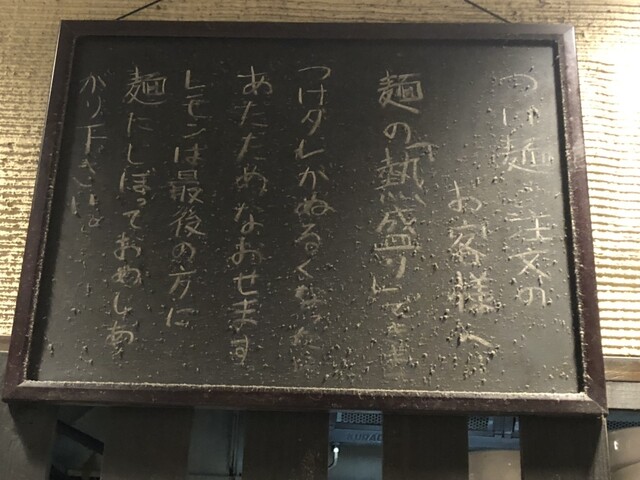 つけ麺ご注文の
お客様へ
麺の熱盛りでき
つけダレがぬるくなった
あたためなおせます
レモンは最後の方に
麺にしぼっておめしあ
がり下さい。